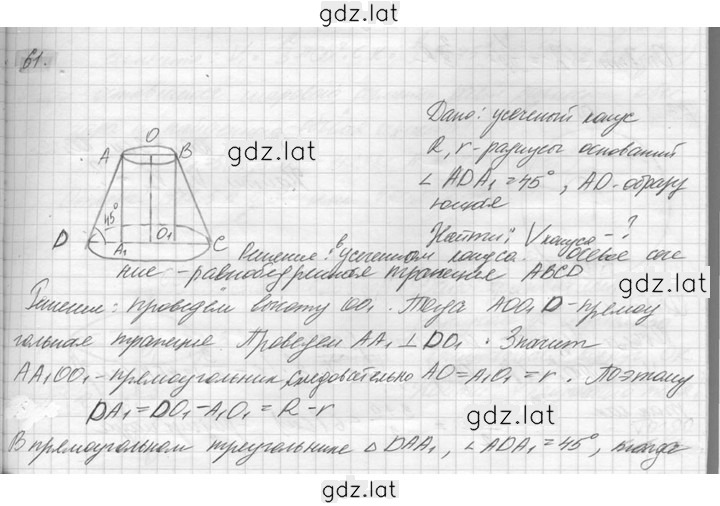 gdz.lat
61.
Дано: усеченый конус
R, r - радиусы оснований
∠ADA₁ = 45°, AD - образу
ющая
Найти: V конуса - ?
O
A B
gdz.lat
45°
D A₁ O₁ C
gdz.lat
Решение: в усеченном конусе осевое сече
ние - равнобедренная трапеция ABCD
Решение: Проведем высоту OO₁. Тогда AOO₁D - прямоу
гольная трапеция. Проведем AA₁ ⊥ DO₁. Значит
AA₁OO₁ - прямоугольник, следовательно AO = A₁O₁ = r. Поэтому
DA₁ = DO₁ - A₁O₁ = R - r
gdz.lat
В прямоугольном треугольнике △DAA₁, ∠ADA₁ = 45°, тогда
gdz.lat